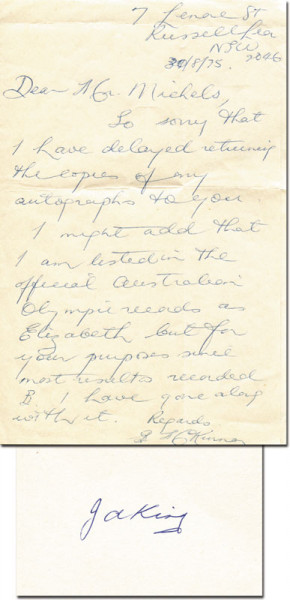 7 Lenore St
Russell Lea
NSW
2046
30/8/75.
Dear Mr. Michels,
So sorry that
I have delayed returning
the copies of my
autographs to you
I might add that
I am listed in the
official Australian
Olympic records as
Elizabeth but for
your purposes since
most results recorded
B. I have gone along
with it. Regards
McKinnon
J A King